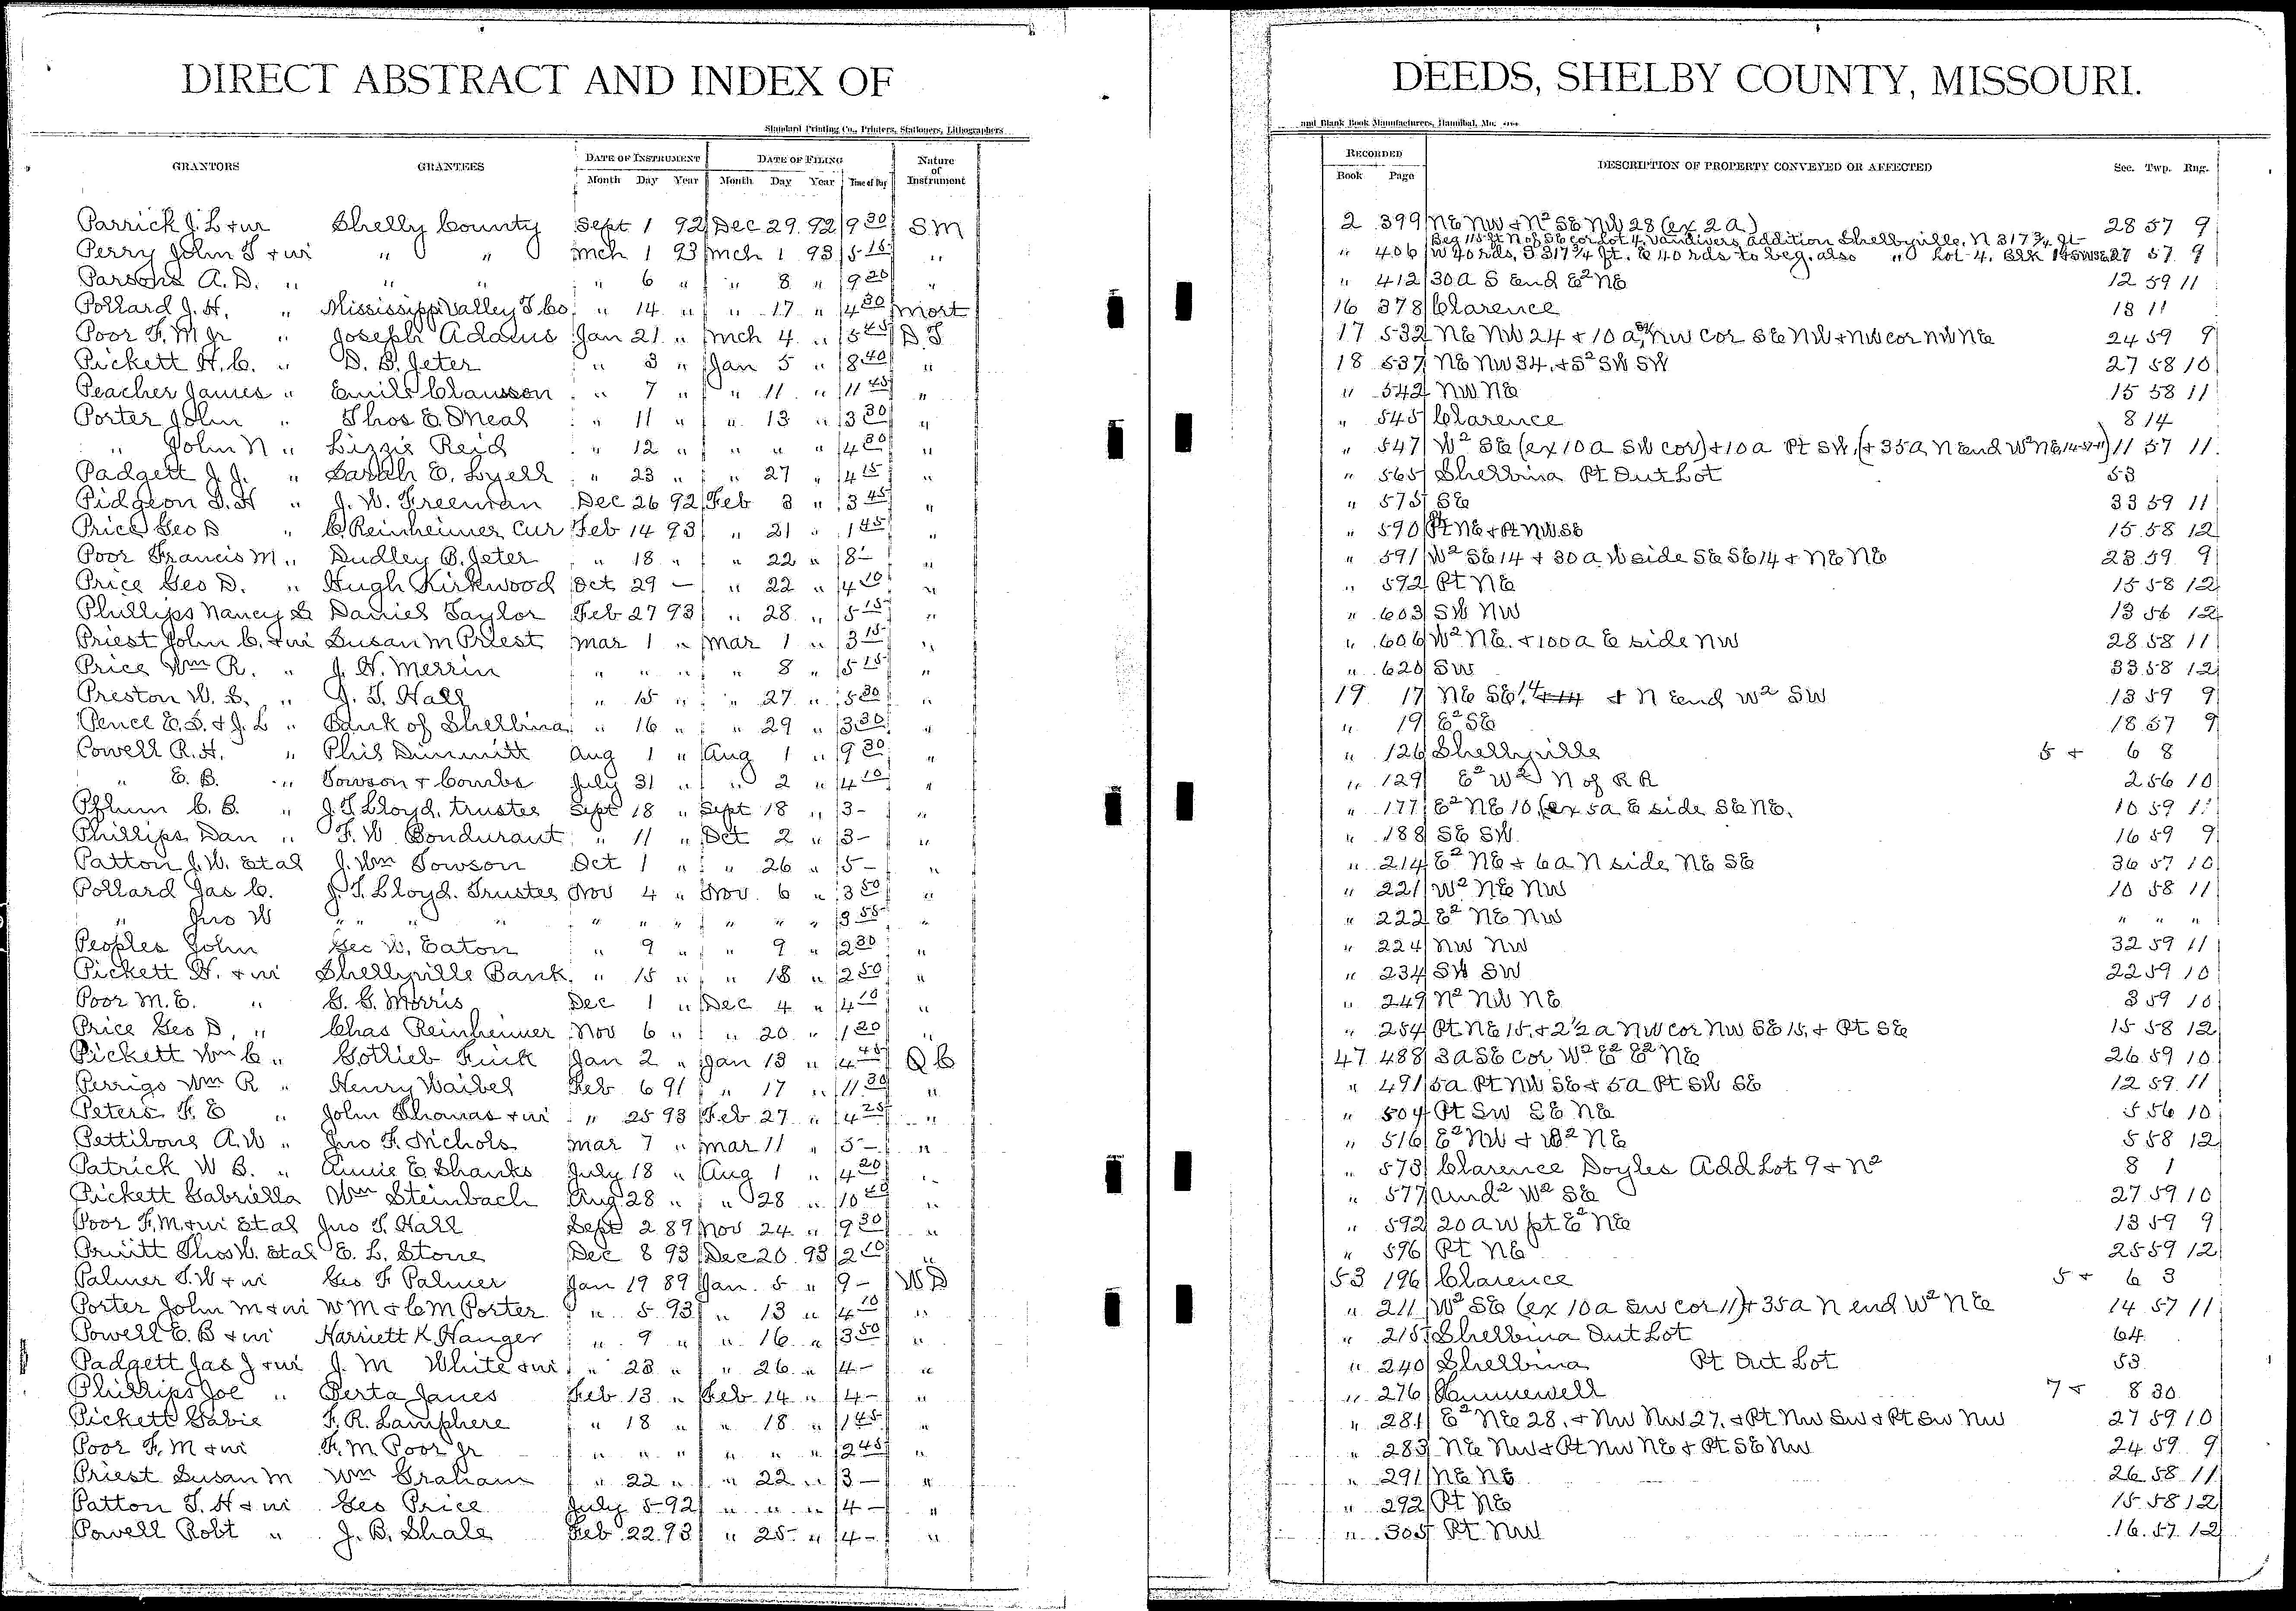 DIRECT ABSTRACT AND INDEX OF
Standard Printing Co., Printers, Stationers, Lithographers
GRANTORS GRANTEES DATE OF INSTRUMENT DATE OF FILING Nature of Instrument
Month Day Year Month Day Year Time of Day
Parrick J. L & ur Shelby County Sept 1 92 Dec 29 92 9 30 S.M
Perry John T & wi " " Mch 1 93 Mch 1 93 5 15 "
Parsons A. D. " " " " 6 " " 8 " 9 20 "
Pollard J. H. " Mississippi Valley T Co " 14 " " 17 " 4 30 Mort
Poor F. M Jr " Joseph Adams Jan 21 " Mch 4 " 5 45 D.T
Pickett H. C. " D. B. Jeter " 3 " Jan 5 " 8 40 "
Peacher James " Emile Clausson " 7 " " 11 " 11 45 "
Porter John " Thos E. Oneal " 11 " " 13 " 3 30 "
" John N " Lizzie Reid " 12 " " " " 4 30 "
Padgett J. J. " Sarah E. Lyell " 23 " " 27 " 4 15 "
Pidgeon S. H " J. W. Freeman Dec 26 92 Feb 3 " 3 45 "
Price Geo D " C. Reinheimer Cur Feb 14 93 " 21 " 1 45 "
Poor Francis M " Dudley B. Jeter " 18 " " 22 " 8 - "
Price Geo D. " Hugh Kirkwood Oct 29 - " 22 " 4 20 "
Phillips Nancy S Daniel Taylor Feb 27 93 " 28 " 5 15 "
Priest John C. & wi Susan M Priest Mar 1 " Mar 1 " 3 15 "
Price Wm R. " J. H. Merrin " " " " 8 " 5 15 "
Preston W. S. " J. T. Hall " 15 " " 27 " 5 30 "
Pence E. S. & J. L " Bank of Shelbina " 16 " " 29 " 3 30 "
Powell R. H. " Phil Dimmitt Aug 1 " Aug 1 " 9 30 "
" E. B. " Towson & Combs July 31 " " 2 " 4 10 "
Pflum C. B. " J. T. Lloyd, trustee Sept 18 " Sept 18 " 3 - "
Phillips Dan " F. W. Bondurant " 11 " Oct 2 " 3 - "
Patton J. W. Et al J. Wm Towson Oct 1 " " 26 " 5 - "
Pollard Jas C. J. T. Lloyd. Trustee Nov 4 " Nov. 6 " 3 50 "
" Jno W " " " " " " " " " 3 55 "
Peoples John Geo W. Eaton " 9 " " 9 " 2 30 "
Pickett H. & wi Shelbyville Bank. " 15 " " 18 " 2 50 "
Poor M. E. " G. G. Morris Dec 1 " Dec 4 " 4 10 "
Price Geo D. " Chas Reinheimer Nov 6 " " 20 " 1 20 "
Pickett Wm C " Gotlieb Fuck Jan 2 " Jan 13 " 4 45 Q C
Perrigo Wm R " Henry Waibel Feb 6 91 " 17 " 11 30 "
Peters F. E " John Thomas & wi " 25 93 Feb 27 " 4 25 "
Pettibone A. W " Jno F. Nichols Mar 7 " Mar 11 " 5 - "
Patrick W B. " Annie E Shanks July 18 " Aug 1 " 4 20 "
Pickett Gabriella Wm Steinbach Aug 28 " " 28 " 10 40 "
Poor F. M & wi Et al Jno T. Hall Sept 2 89 Nov 24 " 9 30 "
Pruitt Thos W. Et al E. L. Stone Dec 8 93 Dec 20 93 2 00 "
Palmer T. W & wi Geo F Palmer Jan 19 89 Jan. 5 " 9 - W D
Porter John M & wi W M & C M Porter " 5 93 " 13 " 4 10 "
Powell E. B & wi Harriett K. Hanger " 9 " " 16 " 3 50 "
Padgett Jas J & wi J. M White & wi " 23 " " 26 " 4 - "
Phillips Joe " Berta Janes Feb 13 " Feb 14 " 4 - "
Pickett Gabie F. R. Lamphere " 18 " " 18 " 1 45 "
Poor F. M & wi F. M Poor Jr " " " " " " 2 45 "
Priest Susan M Wm Graham " 22 " " 22 " 3 - "
Patton T. H & wi Geo Price July 5 92 " " " 4 - "
Powell Robt " J. B. Shale Feb 22 93 " 25 " 4 - "
DEEDS, SHELBY COUNTY, MISSOURI.
and Blank Book Manufacturers, Hannibal, Mo.
RECORDED DESCRIPTION OF PROPERTY CONVEYED OR AFFECTED Sec. Twp. Rng.
Book Page
2 399 NE NW & N2 SE NW 28 (ex 2 a) 28 57 9
Beg 115 ft N of SE cor Lot 4, Vandivers addition Shelbyville, N 317 3/4 ft
" 406 W 40 rds, S 317 3/4 ft. E 40 rds to beg. also " Lot 4. Blk 27 57 9
" 412 30 a S End E2 NE 12 59 11
16 378 Clarence 13 11
17 532 NE NW 24 & 10 a NW cor SE NW & NW cor NW NE 24 59 9
18 537 NE NW 34. & S2 SW SW 27 58 10
" 542 NW NE 15 58 11
" 545 Clarence 8 14
" 547 W2 SE (ex 10 a SW cor) & 10 a Pt SW. (& 35 a N end W2 NE 14-57-11) 11 57 11
" 565 Shelbina Pt Out Lot 53
" 575 SE 33 59 11
" 590 Pt NE & Pt NW SE 15 58 12
" 591 W2 SE 14 & 30 a W side SE SE 14 & NE NE 23 59 9
" 592 Pt NE 15 58 12
" 603 SW NW 13 56 12
" 606 W2 NE. & 100 a E side NW 28 58 11
" 620 SW 33 58 12
19 17 NE SE 14 & N End W2 SW 13 59 9
" 19 E2 SE 18 57 9
" 126 Shelbyville 5 & 6 8
" 129 E2 W2 N of R R 2 56 10
" 177 E2 NE 10 (ex 5 a E side SE NE. 10 59 11
" 188 SE SW 16 59 9
" 214 E2 NE & 6 a N side NE SE 36 57 10
" 221 W2 NE NW 10 58 11
" 222 E2 NE NW " " "
" 224 NW NW 32 59 11
" 234 SW SW 22 59 10
" 249 N2 NW NE 3 59 10
" 254 Pt NE 15, & 2 1/2 a NW cor NW SE 15, & Pt SE 15 58 12
47 488 3 a SE cor W2 E2 E2 NE 26 59 10
" 491 5 a Pt NW SE & 5 a Pt SW SE 12 59 11
" 504 Pt SW SE NE 5 56 10
" 516 E2 NW & W2 NE 5 58 12
" 573 Clarence Doyles Add Lot 9 & N2 8 1
" 577 Und2 W2 SE 27 59 10
" 592 20 a W pt E2 NE 13 59 9
" 596 Pt NE 25 59 12
53 196 Clarence 5 & 6 3
" 211 W2 SE (ex 10 a SW cor 11) & 35 a N end W2 NE 14 57 11
" 215 Shelbina Out Lot 64
" 240 Shelbina Pt Out Lot 53
" 276 Hunnewell 7 & 8 30
" 281 E2 NE 28. & NW NW 27. & Pt NW SW & Pt SW NW 27 59 10
" 283 NE NW & Pt NW NE & Pt SE NW 24 59 9
" 291 NE NE 26 58 11
" 292 Pt NE 15 58 12
" 305 Pt NW 16 57 12